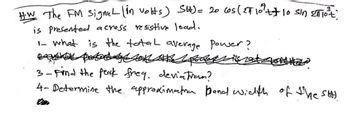 H.W The FM Signal (in volts) S(t) = 20 cos(2π 10⁹t + 10 sin 2π10³t)
is presented across resistive load.
1- what is the total average power?
3 - Find the peak freq. deviation?
4- Determine the approximation band width of the S(t)